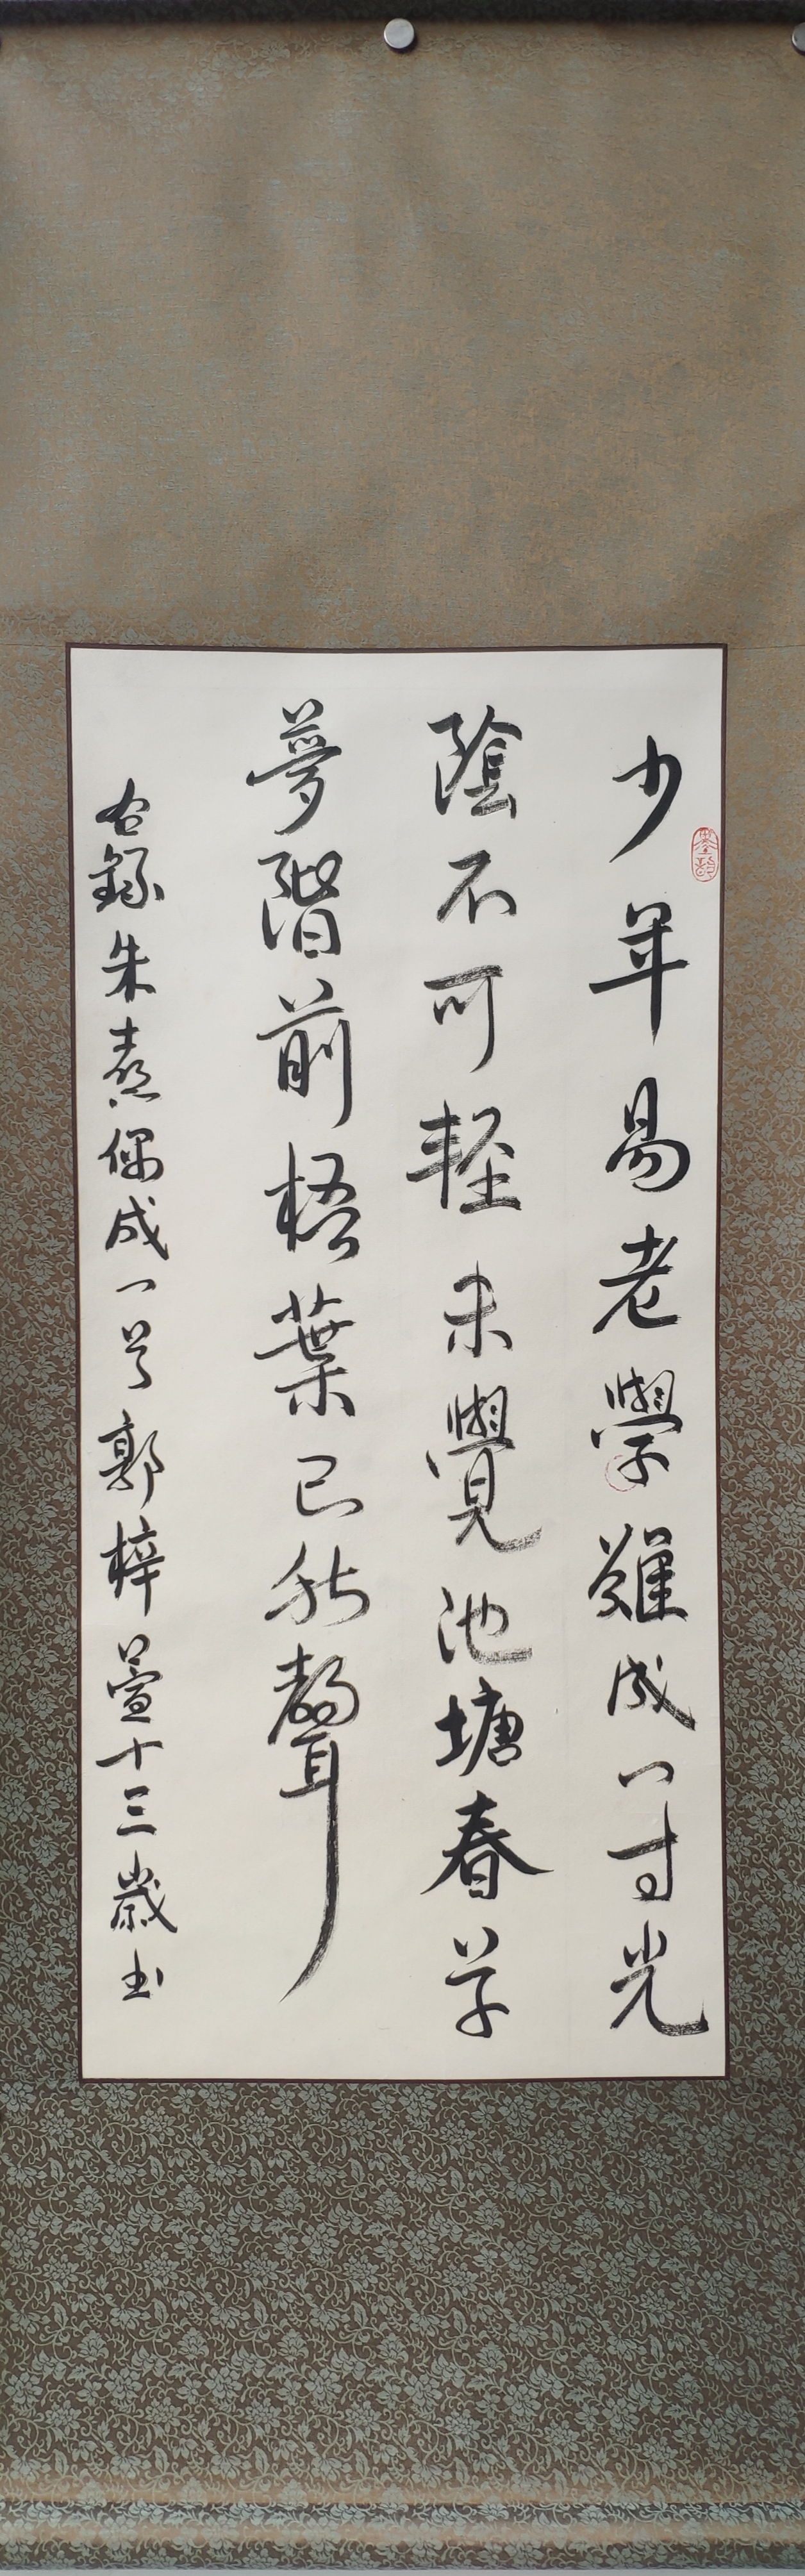 少年易老學難成一寸光
陰不可輕未覺池塘春草
夢階前梧葉已秋聲
右錄朱熹偶成一首郭梓萱十三歲书